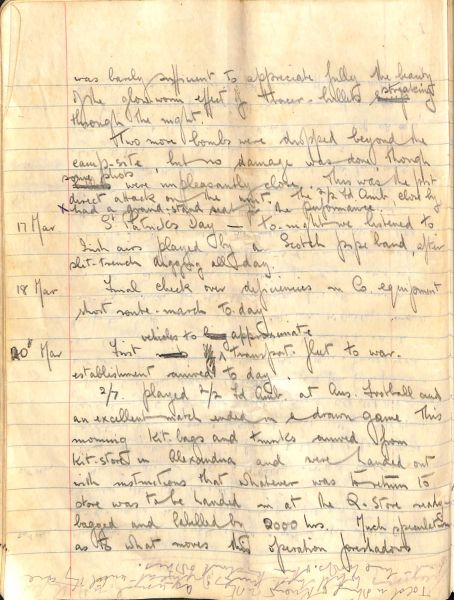 was barely sufficient to appreciate fully the beauty
of the glow-worm effect of tracer-bullets streaking
through the night.
Two more bombs were dropped beyond the
camp-site, but no damage was done, though
some were unpleasantly close. This was the first
direct attack on the unit. The 2/2 Fd Amb. close by
x had a grand-stand seat to the performance.
17 Mar St Patricks Day - To-night we listened to
Irish airs played by a Scotch pipe band, after
slit-trench digging all day.
18 Mar Final check over deficiencies in Co. equipment
short route-march to-day.
vehicles to approximate
20 Mar First transport fleet to war.
establishment arrived to day.
2/7. played 2/2 Fd Amb. at Aus. Football and
an excellent match ended in a drawn game. This
morning kit-bags and trunks arrived from
kit-store in Alexandria and were handed out
with instructions that whatever was to return to
store was to be handed in at the Q-Store ready
bagged and labelled by 2000 hrs. Much speculation
as to what moves this operation foreshadows